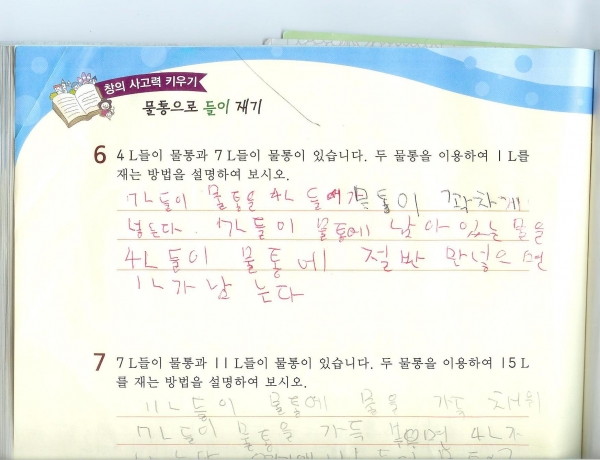 창의 사고력 키우기
물통으로 들이 재기
6 4L들이 물통과 7L들이 물통이 있습니다. 두 물통을 이용하여 1L를
재는 방법을 설명하여 보시오.
7L들이 물통을 4L 들에 물통이 꽉차게
넣는다. 7L들이 물통에 남아 있는 물을
4L들이 물통에 절반만 넣으면
1L가 남는다
7 7L들이 물통과 11L들이 물통이 있습니다. 두 물통을 이용하여 15L
를 재는 방법을 설명하여 보시오.
11L들이 물통에 물을 가득 채워
7L들이 물통을 가득 부으면 4L가